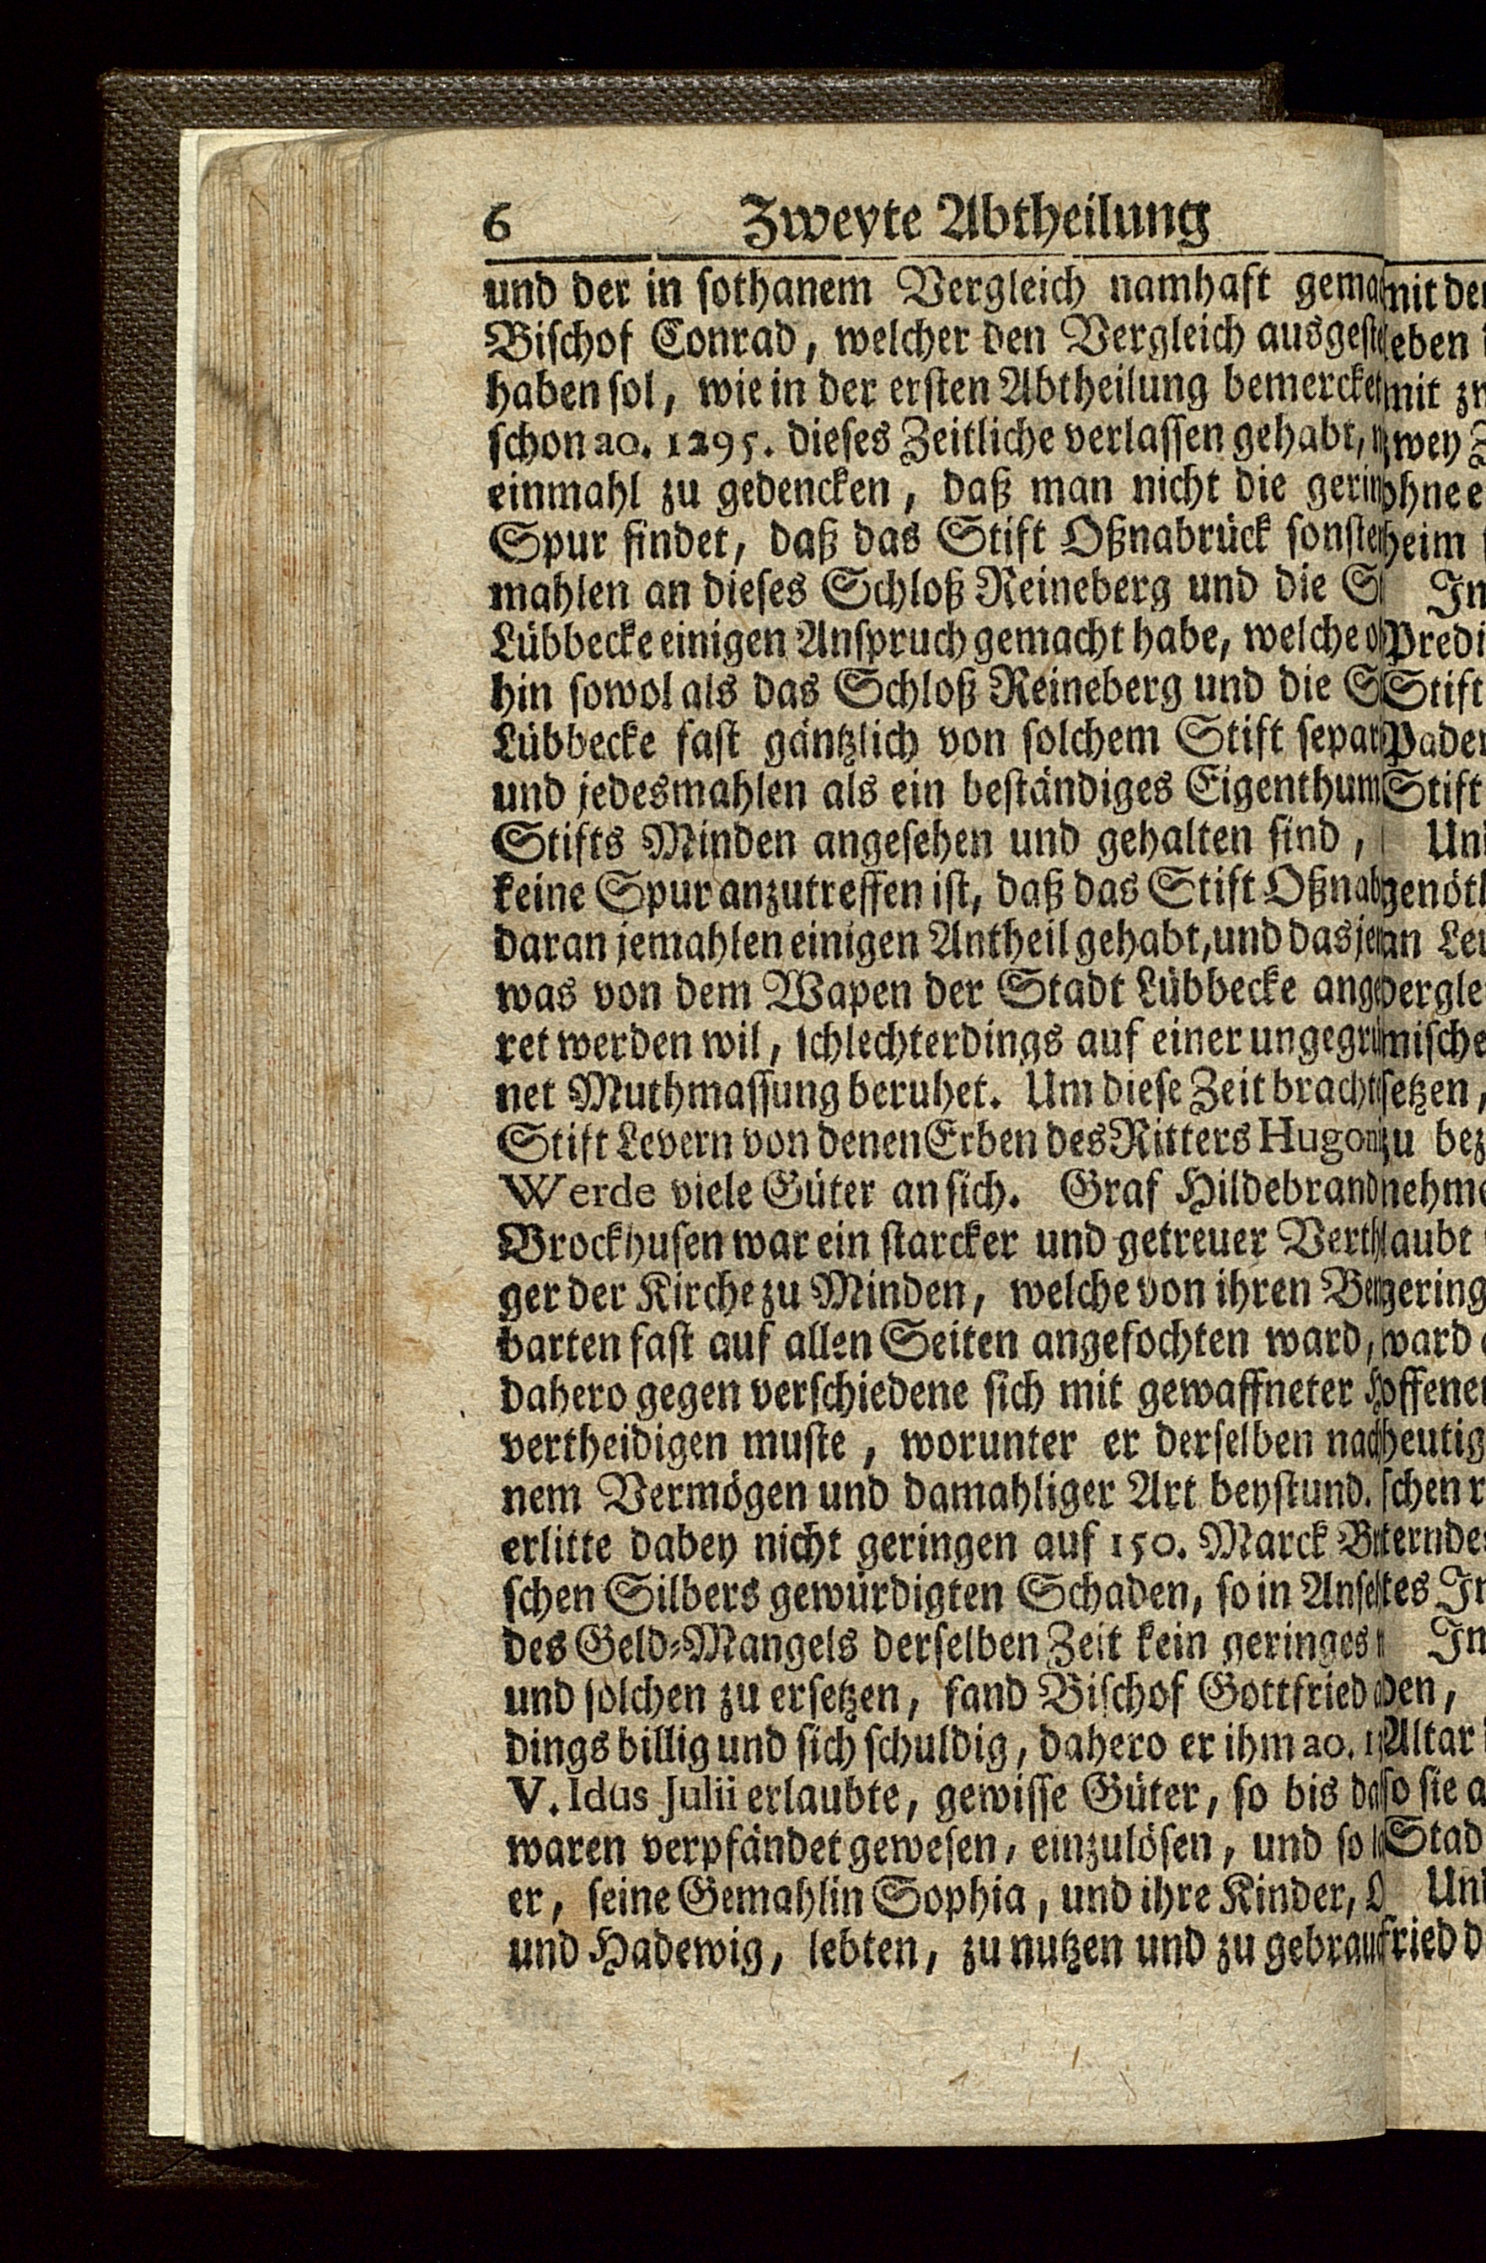 6 Zweyte Abtheilung
und der in sothanem Vergleich namhaft
Bischof Conrad, welcher den Vergleich
haben sol, wie in der ersten Abtheilung bemercket
schon ao. 1295. dieses Zeitliche verlassen gehabt,
einmahl zu gedencken, daß man nicht die
Spur findet, daß das Stift Oßnabrück
mahlen an dieses Schloß Reineberg und die
Lübbecke einigen Anspruch gemacht habe, welche
hin sowol als das Schloß Reineberg und die
Lübbecke fast gäntzlich von solchem Stift
und jedesmahlen als ein beständiges Eigenthum
Stifts Minden angesehen und gehalten sind,
keine Spur anzutreffen ist, daß das Stift
daran jemahlen einigen Antheil gehabt, und
was von dem Wapen der Stadt Lübbecke
ret werden wil, schlechterdings auf einer
net Muthmassung beruhet. Um diese Zeit
Stift Levern von denen Erben des Ritters
Werde viele Güter an sich. Graf Hildebrand
Brockhusen war ein starcker und getreuer
ger der Kirche zu Minden, welche von ihren
barten fast auf allen Seiten angefochten ward,
dahero gegen verschiedene sich mit gewaffneter
vertheidigen muste, worunter er derselben
nem Vermögen und damahliger Art beystund.
erlitte dabey nicht geringen auf 150. Marck
schen Silbers gewürdigten Schaden, so in
des Geld-Mangels derselben Zeit kein geringes
und solchen zu ersetzen, fand Bischof Gottfried
dings billig und sich schuldig, dahero er ihm ao.
V. Idus Julii erlaubte, gewisse Güter, so bis
waren verpfändet gewesen, einzulösen, und so
er, seine Gemahlin Sophia, und ihre Kinder,
und Hadewig, lebten, zu nutzen und zu
mit
eben
mit
zwey
ohne
heim
In
Stift
Stift
an
setzen,
zu
ward
In
den,
Altar
so sie